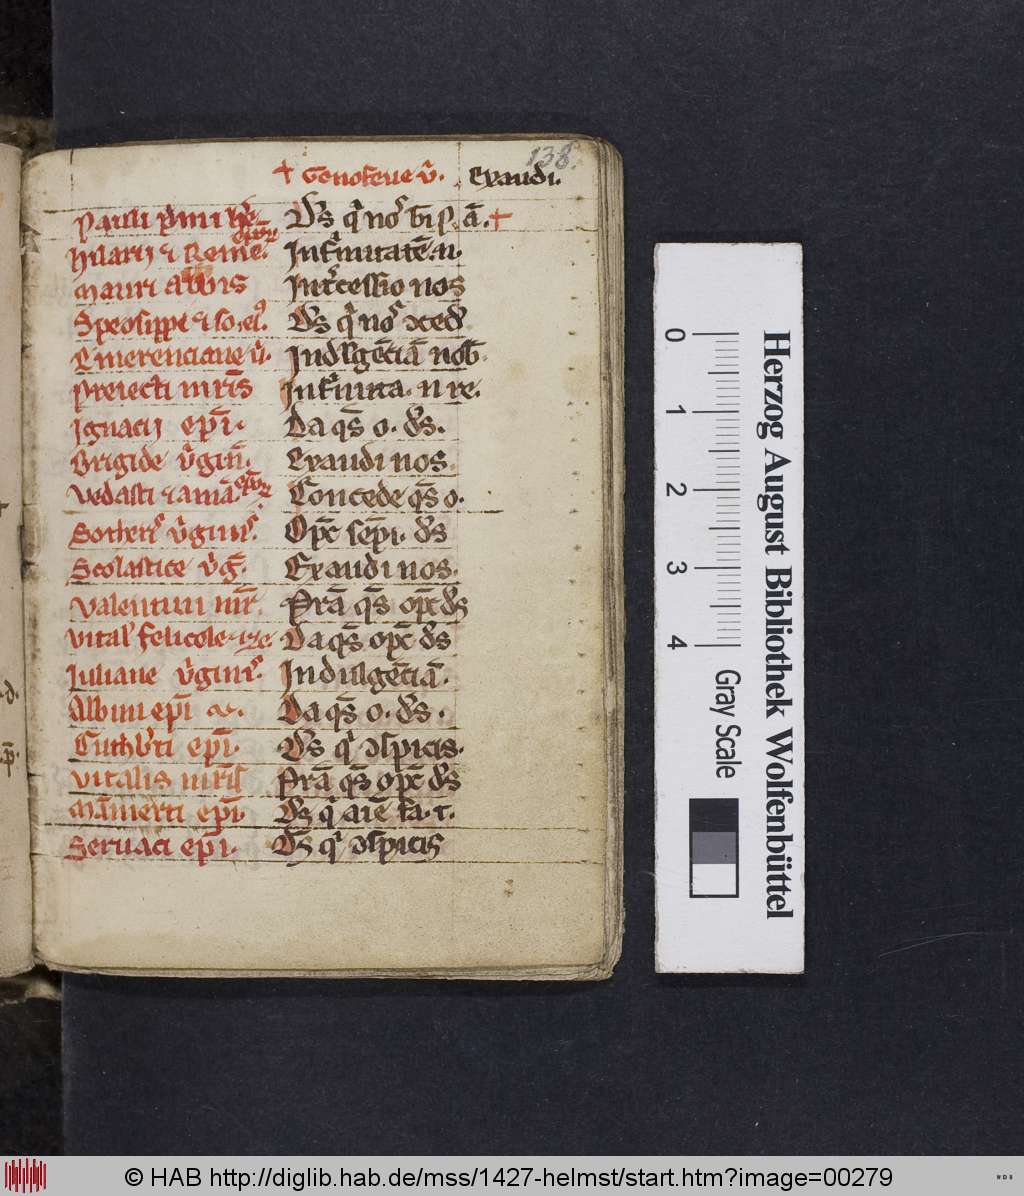 138.
+ Genofeue v̄. Exaudi.
Pauli p̄mi h̄e. Ds q̄ noˢ b̄ī. ā. +
hilarij ⁊ Remē. ep̄or Infirmitatē. n.
Mauri abbīs Intercessio nos
Speosippi ⁊ so. eiꝰ. Ds q̄ noˢ ↄced
Emerenciane v̄. Indulgēciā nob̄.
Preiecti mrīs Infirmita. n re.
Ignacij ep̄i. Da qs̄ o. ds.
Brigide v̄gin̄. Exaudi nos.
Vedasti ⁊ amā. ep̄or Concede qs̄ o.
Sotheris v̄ginis. Op̄c sep̄i. ds
Scolastice v̄ḡ. Exaudi nos.
Valentini mr̄ Prā qs̄ op̄c ds
Vital' felicole ⁊ ze. Da qs̄ op̄c ds
Iuliane v̄ginis. Indulgēciā.
Albini ep̄i Da qs̄ o. ds.
Cuthb̄ti ep̄i. Ds q̄ ↄspicis.
Vitalis mr̄is Prā qs̄ op̄c ds
Mām̄erti ep̄i. Ds q̄ aīe fa. t.
Seruaci ep̄i. Ds q̄ ↄspicis
0 1 2 3 4
Gray Scale
Herzog August Bibliothek Wolfenbüttel
© HAB http://diglib.hab.de/mss/1427-helmst/start.htm?image=00279